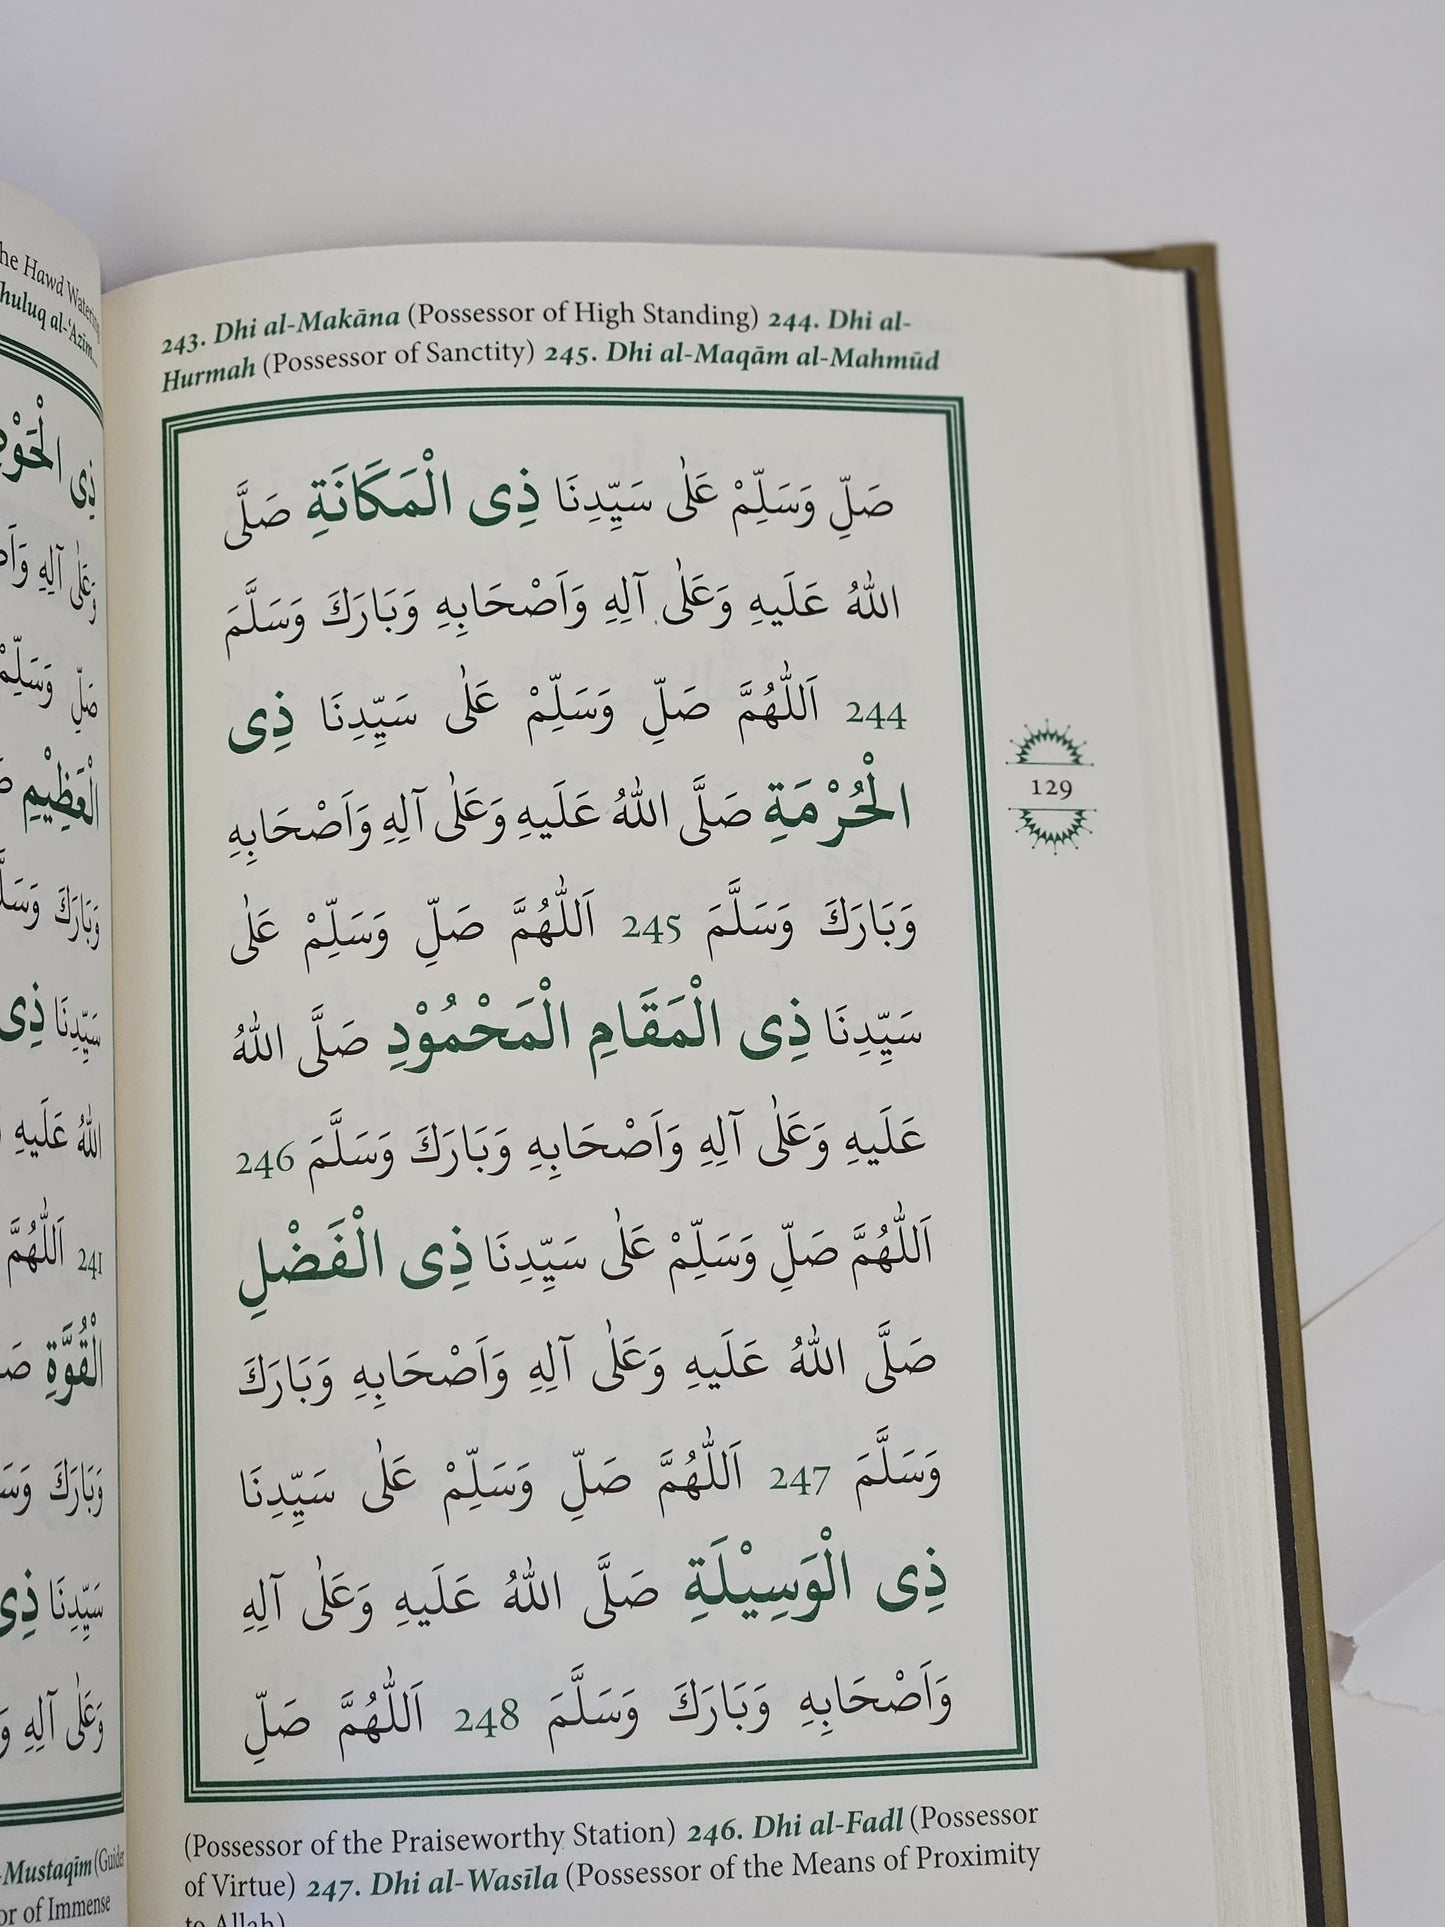 he Hawd Watering
huluq al-‘Azīm
ذِي الْحَوْضِ
وَعَلٰى آلِهِ
صَلِّ وَسَلِّمْ
الْعَظِيْمِ
وَبَارَكَ
سَيِّدِنَا ذِى
اللهُ عَلَيهِ
241 اَللّٰهُمَّ
الْقُوَّةِ
وَبَارَكَ
سَيِّدِنَا ذِى
وَعَلٰى آلِهِ
-Mustaqīm (Guider
or of Immense
243. Dhi al-Makāna (Possessor of High Standing) 244. Dhi al-
Hurmah (Possessor of Sanctity) 245. Dhi al-Maqām al-Mahmūd
صَلِّ وَسَلِّمْ عَلٰى سَيِّدِنَا ذِى الْمَكَانَةِ صَلَّى
اللهُ عَلَيهِ وَعَلٰى آلِهِ وَاَصْحَابِهِ وَبَارَكَ وَسَلَّمَ
244 اَللّٰهُمَّ صَلِّ وَسَلِّمْ عَلٰى سَيِّدِنَا ذِى
الْحُرْمَةِ صَلَّى اللهُ عَلَيهِ وَعَلٰى آلِهِ وَاَصْحَابِهِ
وَبَارَكَ وَسَلَّمَ 245 اَللّٰهُمَّ صَلِّ وَسَلِّمْ عَلٰى
سَيِّدِنَا ذِى الْمَقَامِ الْمَحْمُوْدِ صَلَّى اللهُ
عَلَيهِ وَعَلٰى آلِهِ وَاَصْحَابِهِ وَبَارَكَ وَسَلَّمَ 246
اَللّٰهُمَّ صَلِّ وَسَلِّمْ عَلٰى سَيِّدِنَا ذِى الْفَضْلِ
صَلَّى اللهُ عَلَيهِ وَعَلٰى آلِهِ وَاَصْحَابِهِ وَبَارَكَ
وَسَلَّمَ 247 اَللّٰهُمَّ صَلِّ وَسَلِّمْ عَلٰى سَيِّدِنَا
ذِى الْوَسِيْلَةِ صَلَّى اللهُ عَلَيهِ وَعَلٰى آلِهِ
وَاَصْحَابِهِ وَبَارَكَ وَسَلَّمَ 248 اَللّٰهُمَّ صَلِّ
129
(Possessor of the Praiseworthy Station) 246. Dhi al-Fadl (Possessor
of Virtue) 247. Dhi al-Wasīla (Possessor of the Means of Proximity
to Allah)